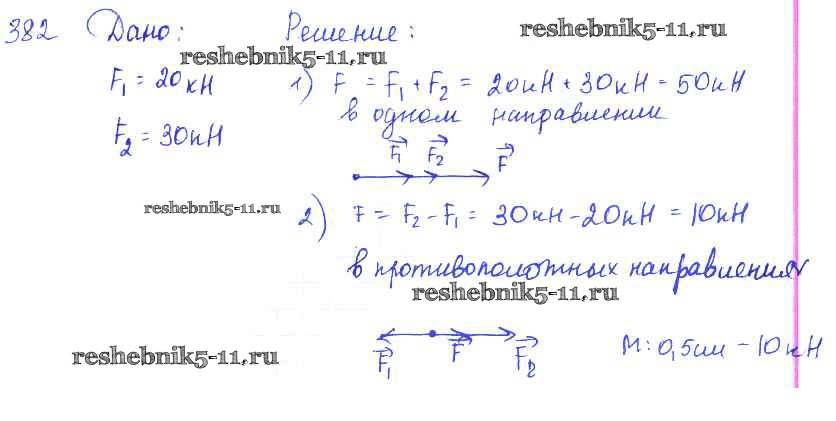 382 Дано: Решение:
reshebnik5-11.ru
reshebnik5-11.ru
F₁ = 20кН 1) F = F₁ + F₂ = 20кН + 30кН = 50кН
в одном направлении
F₂ = 30кН
F₁ F₂ F
reshebnik5-11.ru
2) F = F₂ - F₁ = 30кН - 20кН = 10кН
в противополотных направления
reshebnik5-11.ru
reshebnik5-11.ru
F₁ F F₂ М: 0,5см - 10кН